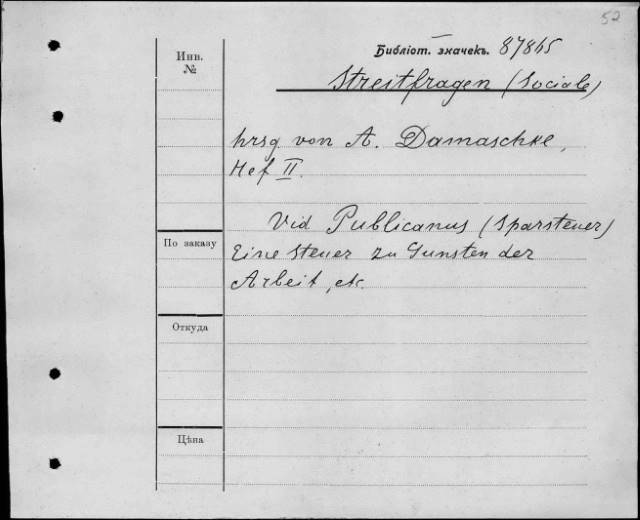 52
Библіот. значекъ. 87865
Инв.
№
Streitfragen (Sociale)
hrsg von A. Damaschke,
Hef II.
Vid Publicanus (Sparsteuer)
По заказу
Eine Steuer zu Gunsten der
Arbeit, etc.
Откуда
Цѣна